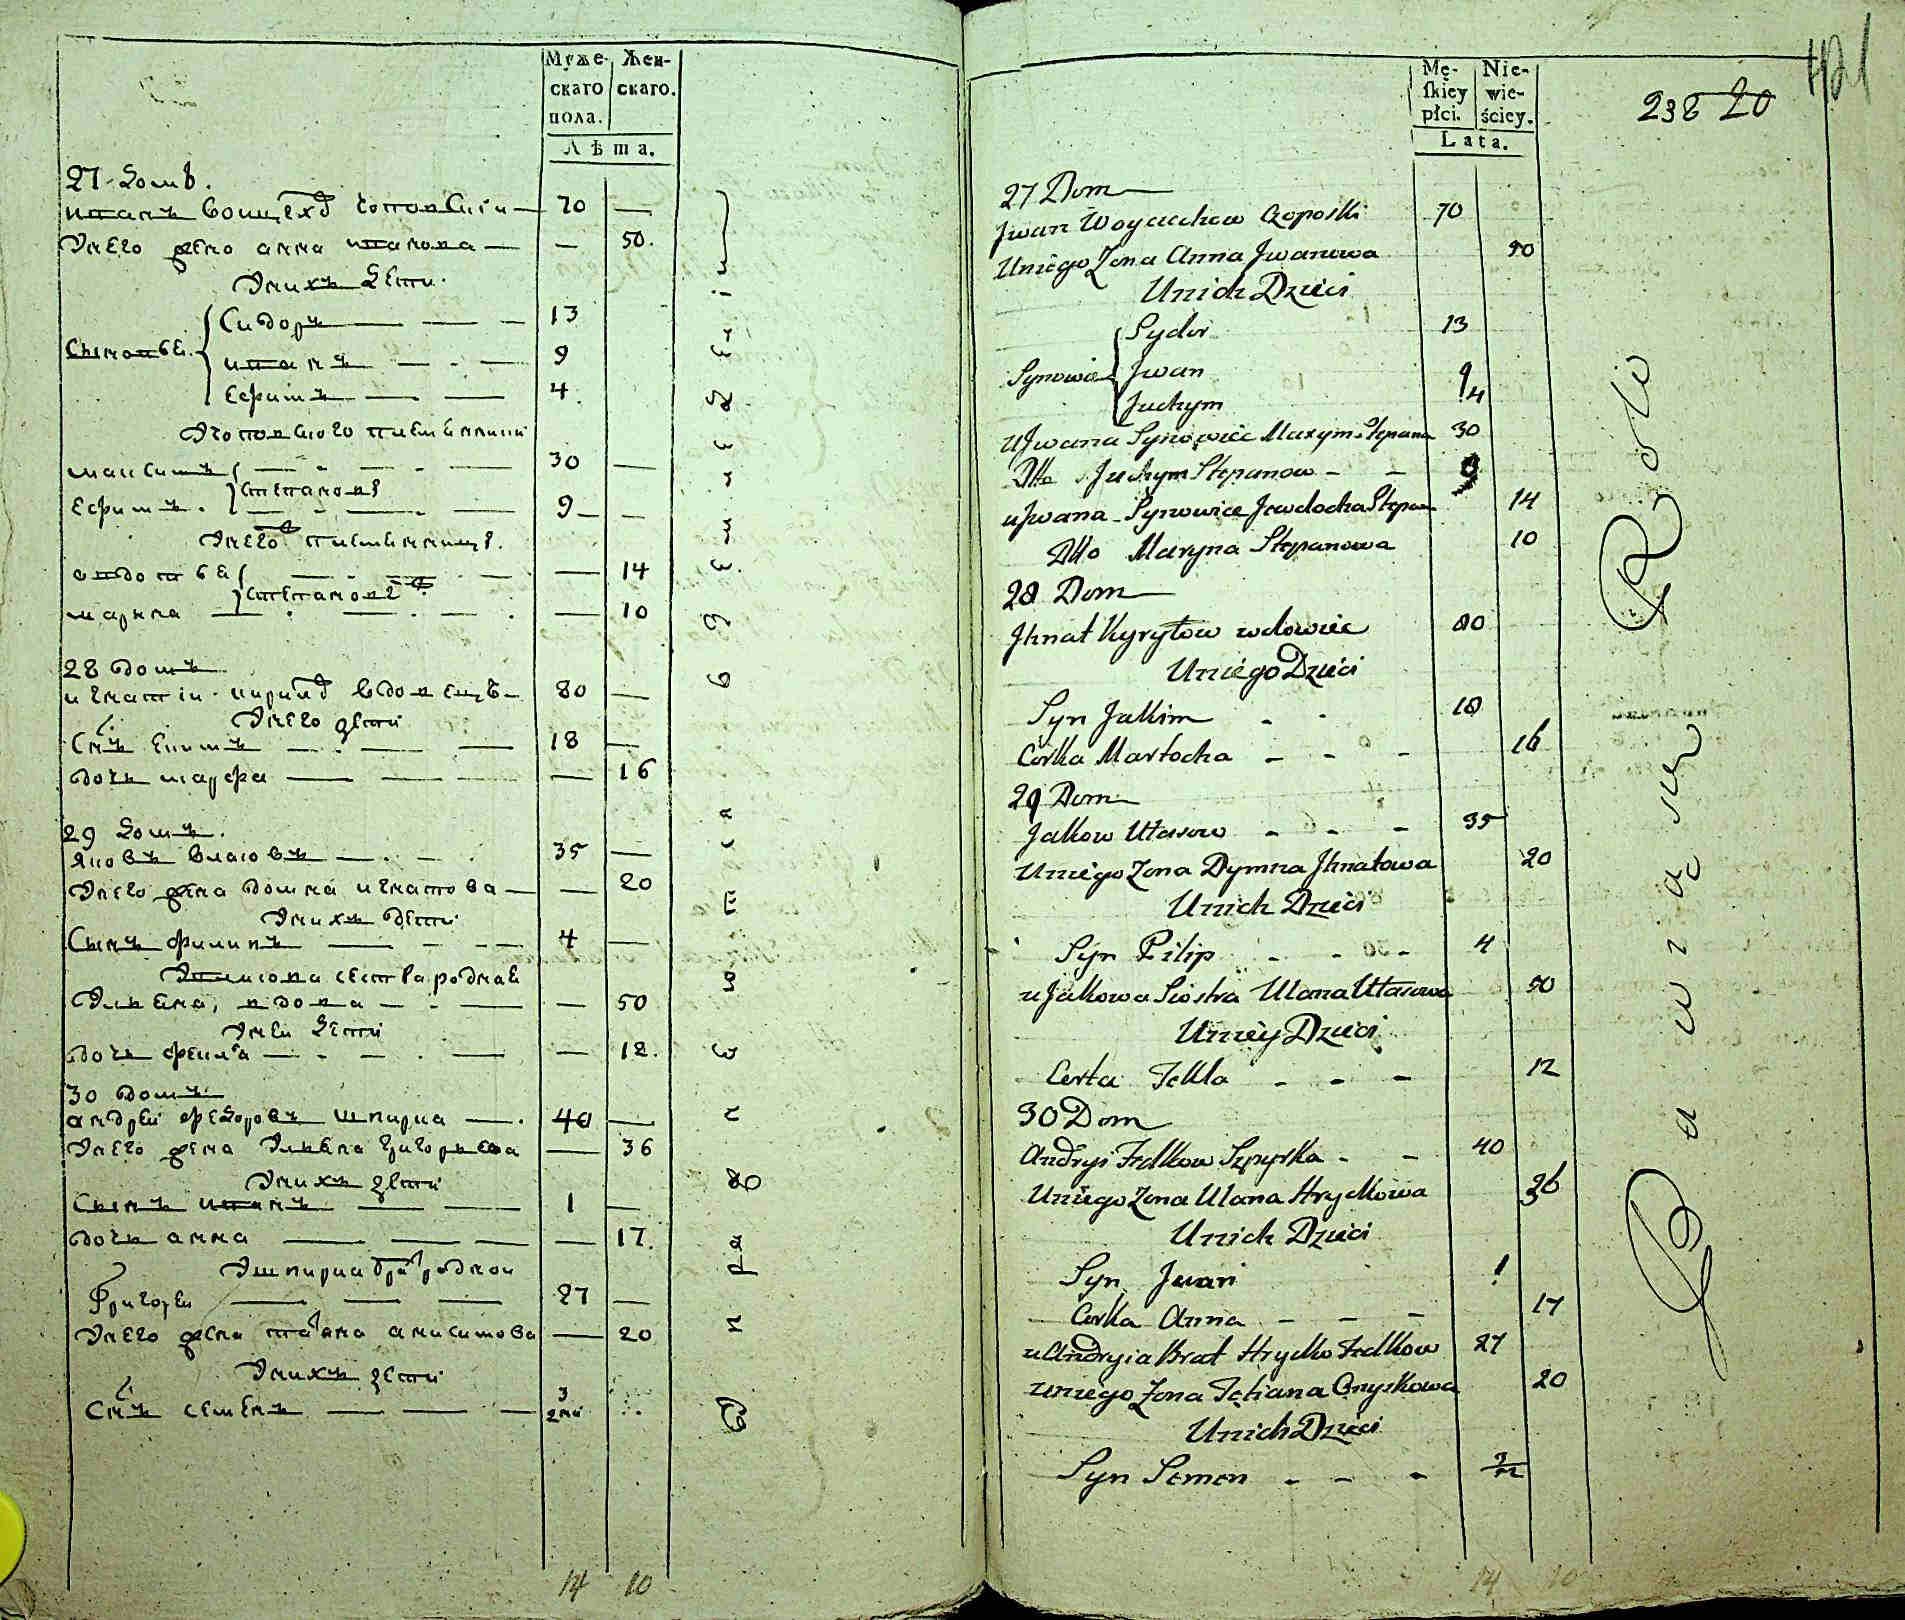 Муже-
скаго
пола.
Жен-
скаго.
Лѣта.
27 Домъ.
иванъ войцеховъ чоповскій — 70 —
у него жена анна иванова — — 50.
у нихъ Дети.
Сыновья. Сидоръ — 13
иванъ — 9
Ефимъ — 4
У чоповского племянники
максимъ — 30 —
Степановы
Ефимъ. — 9 —
у него племянницы.
— 14
Степановы
марина — — 10
28 домъ
игнатій кириловъ вдовецъ — 80 —
у него дети
Снъ екимъ — 18 —
дочь марфа — — 16
29 Домъ.
яковъ власовъ — 35 —
у него жена домна игнатова — — 20
у нихъ дети
Сынъ филипъ — 4 —
У якова сестра родная
Ульяна, вдова — — 50
у неи Дети
дочь фекла — — 12.
30 домъ
андрей федоровъ шпирка — 40 —
у него жена Ульяна григорьева — 36
у нихъ дети
Сынъ иванъ — 1 —
дочь анна — — 17.
У шпирки братъ родной
Григорей — 27 —
у него жена татьяна анисимова — 20
у нихъ дети
Снъ семенъ — 3
14 10
Mę-
skiey
płci.
Nie-
wie-
ściey.
Lata.
238 20
421
27 Dom
Jwan Woyciechow Czoposki 70
Uniego Zona Anna Jwanowa 50
Unich Dzieci
Sydor 13
Synowie Jwan 9
Juchym 4
uJwana Synowiec Maxym Stepana 30
Dtto Juchym Stepanow - - 9
uJwana Synowice Jewdocha Stepan 14
Dtto Maryna Stepanowa 10
28 Dom
Jhnat Kyryłow wdowiec 80
Uniego Dzieci
Syn Jakim - - 18
Corka Martocha - - - 16
29 Dom
Jakow Ułasow - - - 35
Uniego Zona Dymna Jhnatowa 20
Unich Dzieci
Syn Pilip - - - 4
u Jakowa Siostra Ulana Ułasowa 50
Uniey Dzieci
Corka Tekla - - - 12
30 Dom
Andryi Fedkow Szpyrka - - 40
Uniego Zona Ulana Hryckowa 36
Unich Dzieci
Syn Jwan 1
Corka Anna - - - 17
u Andryia Brat Hrycko Fedkow 27
uniego Zona Tetiana Onyskowa 20
Unich Dzieci
Syn Semen - - - 3/12
14 10